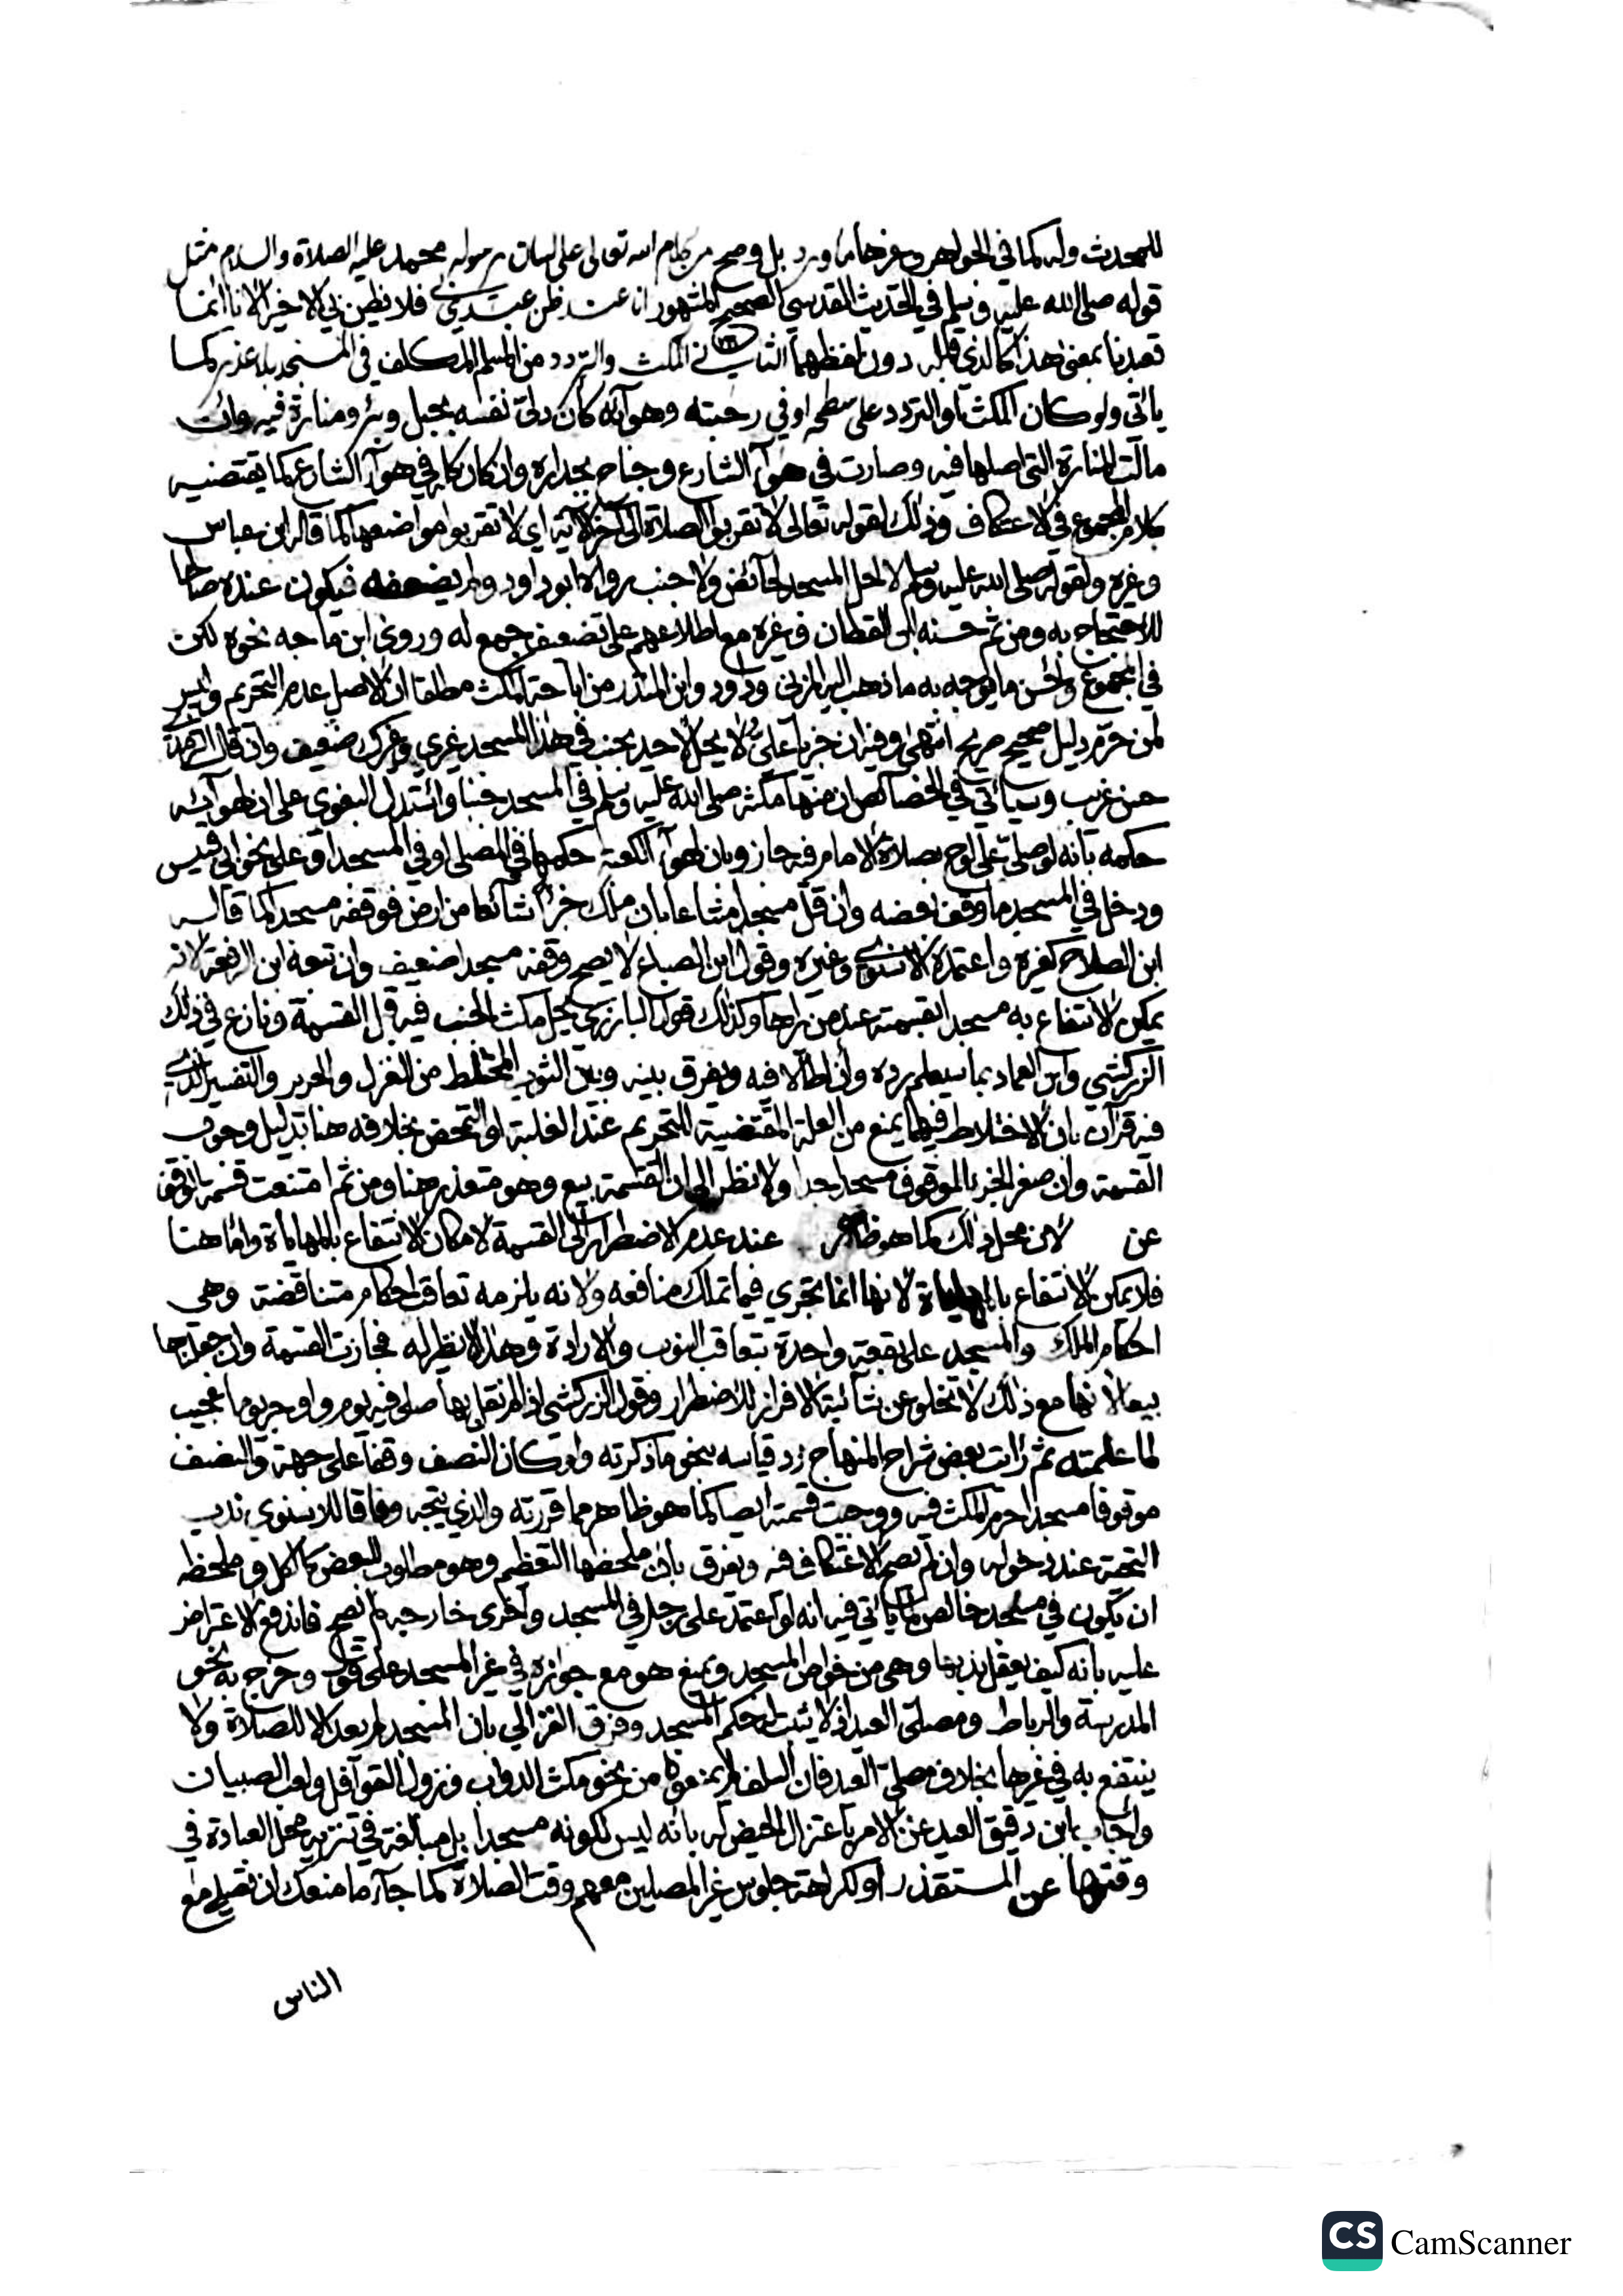 للمحدث وله كما في الجواهر وغيرها ما ورد بل وصح من كلام الله تعالى على لسان رسوله محمد عليه الصلاة والسلام مثل
قوله صلى الله عليه وسلم في الحديث القدسي الصحيح المشهور انا عند ظن عبدي بي فلا يظن بي الا خيرا لانا انما
تعبدنا بمعنى هذا كالذي قبله دون لفظهما الثاني المكث والتردد من المسلم المكلف في المسجد بلا عذر كما
يأتي ولو كان المكث او التردد على سطحه او في رحبته وهوآئه كأن دلى نفسه بحبل وبئر ومنارة فيه وان
مالت المنارة التي اصلها فيه وصارت في هوآء الشارع وجناح بجداره وان كان كله في هوآء الشارع كما يقتضيه
كلام المجموع في الاعتكاف وذلك لقوله تعالى لا تقربوا الصلاة الى آخر الآية اي لا تقربوا مواضعها كما قاله ابن عباس
وغيره ولقوله صلى الله عليه وسلم لا احل المسجد لحائض ولا جنب رواه ابو داود ولم يضعفه فيكون عنده صالحا
للاحتجاج به ومن ثم حسنه ابن القطان وغيره مع اطلاعهم على تضعيف جمع له وروى ابن ماجه نحوه لكن
في المجموع واحسن ما يوجه به ما ذهب اليه المزني وداود وابن المنذر من اباحة المكث مطلقا ان الاصل عدم التحريم وليس
لمن حرم دليل صحيح صريح انتهى وفيه ان خبر يا علي لا يحل لاحد يجنب في هذا المسجد غيري وغيرك ضعيف وان قال الترمذي
حسن غريب وسيأتي في الخصائص ان منها مكثه صلى الله عليه وسلم في المسجد جنبا واستدل البغوي على ان لهوآئه
حكمه بانه لو صلى على لوح بصلاة الامام فيه جاز وبان لهوآء الكعبة حكمها في المصلى او في المسجد او على نحو ابي قبيس
ودخل في المسجد ما وقف بعضه وان قل مسجدا مشاعا بان ملك جزأ شائعا من ارض فوقفه مسجدا كما قاله
ابن الصلاح كغيره واعتمده الاسنوي وغيره وقول ابن الصباغ لا يصح وقفه مسجدا ضعيف وان تبعه ابن الرفعة لانه
يمكن الانتفاع به مسجدا بقسمته عند من يراها وكذلك قول البارزي يحل مكث الجنب فيه قبل القسمة ونازع في ذلك
الزركشي وابن العماد بما سيعلم رده وان اطالا فيه ويفرق بينه وبين الثوب المختلط من الغزل والحرير والتفسير الذي
فيه قرآن بان الاختلاط فيهما يمنع من العلة المقتضية للتحريم عند الغلبة او التمحض بخلافه هنا بدليل وجوب
القسمة وان صغر الجزء الموقوف مسجدا جدا ولا نظر الى ان القسمة بيع وهو متعذر هنا ومن ثم امتنعت قسمة الوقف
عن لان محل ذلك كما هو ظاهر عند عدم الاضطرار الى القسمة لامكان الانتفاع بالمهايأة واما هنا
فلا يمكن الانتفاع بالمهايأة لانها انما تجري فيما تملك منافعه ولانه يلزمه تعاقب احكام متناقضة وهي
احكام الملك والمسجد على بقعة واحدة بتعاقب النوب والارادة وهذا لا نظير له فجازت القسمة وان جعلناها
بيعا لانها مع ذلك لا تخلو عن شائبة الافراز للاضطرار وقول الزركشي اذا لم نقل بها صلى فيه يوم واوجر يوما عجيب
لما علمته ثم رأيت بعض شراح المنهاج رد قياسه بنحو ما ذكرته ولو كان النصف وقفا على جهة والنصف
موقوفا مسجدا حرم المكث فيه ووجبت قسمته ايضا كما هو ظاهر مما قررته والذي يتجه وفاقا للاسنوي ندب
التحية عند دخوله وان لم يصح الاعتكاف فيه ويفرق بان ملحظها التعظيم وهو مطلوب للبعض كالكل وملحظه
ان يكون في مسجد خالص لما يأتي فيه انه لو اعتمد على رجل في المسجد واخرى خارجه لم يصح فاندفع الاعتراض
عليه بانه كيف يعقل ندبها وهي من خواص المسجد ويمنع هو مع جوازه في غير المسجد على قول وخرج به نحو
المدرسة والرباط ومصلى العيد اذ لا يثبت لها حكم المسجد وفرق الغزالي بان المسجد لم يعد الا للصلاة ولا
ينتفع به في غيرها بخلاف مصلى العيد فان السلف لم يمنعوه من نحو مكث الدواب ونزول القوآفل ولعب الصبيان
واجاب ابن دقيق العيد عن الامر باعتزال الحيض له بانه ليس لكونه مسجدا بل مبالغة في تنزيه محل العبادة في
وقتها عن المستقذر او لكراهة جلوس غير المصلين معهم وقت الصلاة كما جآء ما منعك ان تصلي مع
الناس
CS CamScanner